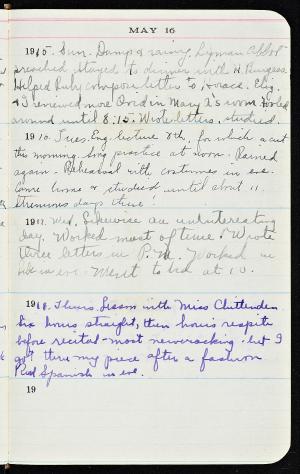 MAY 16
1915. Sun. Damp & raining. Lyman Abbot
preached. Stayed to dinner with H. Burgess.
Helped Ruby compose letter to Horace. Eliz.
& I reviewed more Ovid in Mary L's room.
around until 8:15. Wrote letters, studied.
1916. Tues. Eng. lecture 8th, for which a cut
this morning. Song practice at noon. Rained
again. Rehearsal with costumes in eve.
Came home & studied until about 11.
Strenuous days these!
1917. Wed. Likewise an uninteresting
day. Worked most of time. Wrote
three letters in P.M. Worked in
in eve. Went to bed at 10.
1918. Thurs. Lesson with Miss Chittenden
six hours straight, then hour's respite
before recital - most nerveracking - but I
got thru my piece after a fashion
Red Spanish in eve.
19